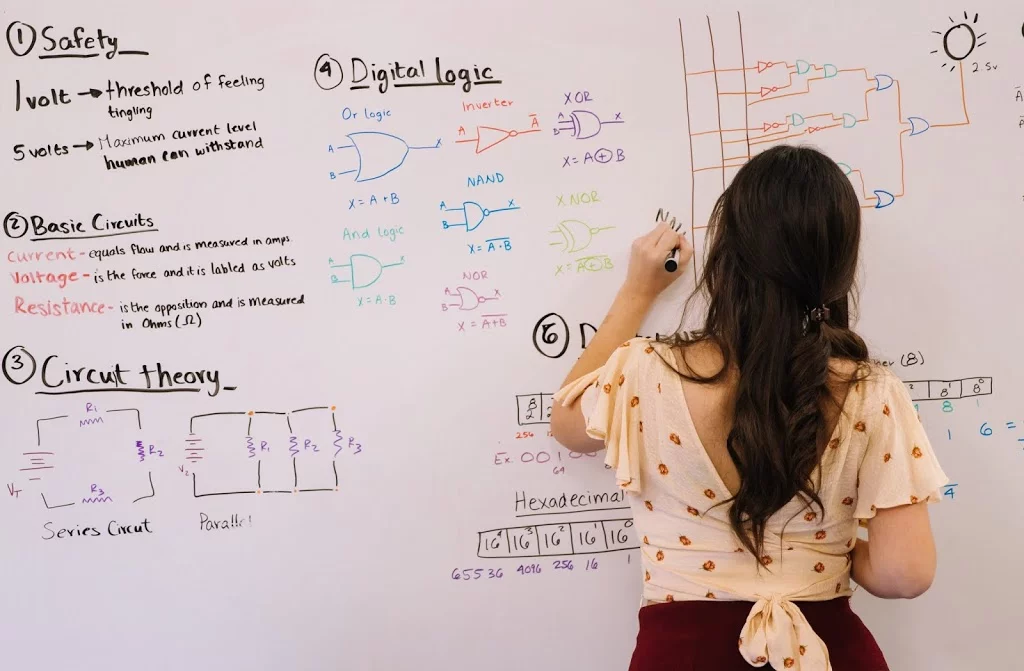 ① Safety
1 volt → threshold of feeling
tingling
5 volts → Maximum current level
human can withstand
② Basic Circuits
current - equals flow and is measured in amps
Voltage - is the force and it is labled as volts
Resistance - is the opposition and is measured
in Ohms (Ω)
③ Circuit theory
R₁
R₂
R₃
V_T
Series Circut
V₂
R₁
R₂
R₃
Parallel
④ Digital logic
Or logic
A
B
X
X = A + B
And logic
A
B
X
X = A·B
Inverter
A
A̅
NAND
A
B
X
X = A̅·̅B̅
NOR
A
B
X
X = A̅+̅B̅
XOR
A
B
X
X = A ⊕ B
X NOR
X = A̅⊕̅B̅
2.5v
⑤
(8)
8¹
8⁰
8
1
1
6 =
4
256
Ex. 001
64
Hexadecimal
16⁴ 16³ 16² 16¹ 16⁰
65536 4096 256 16 1